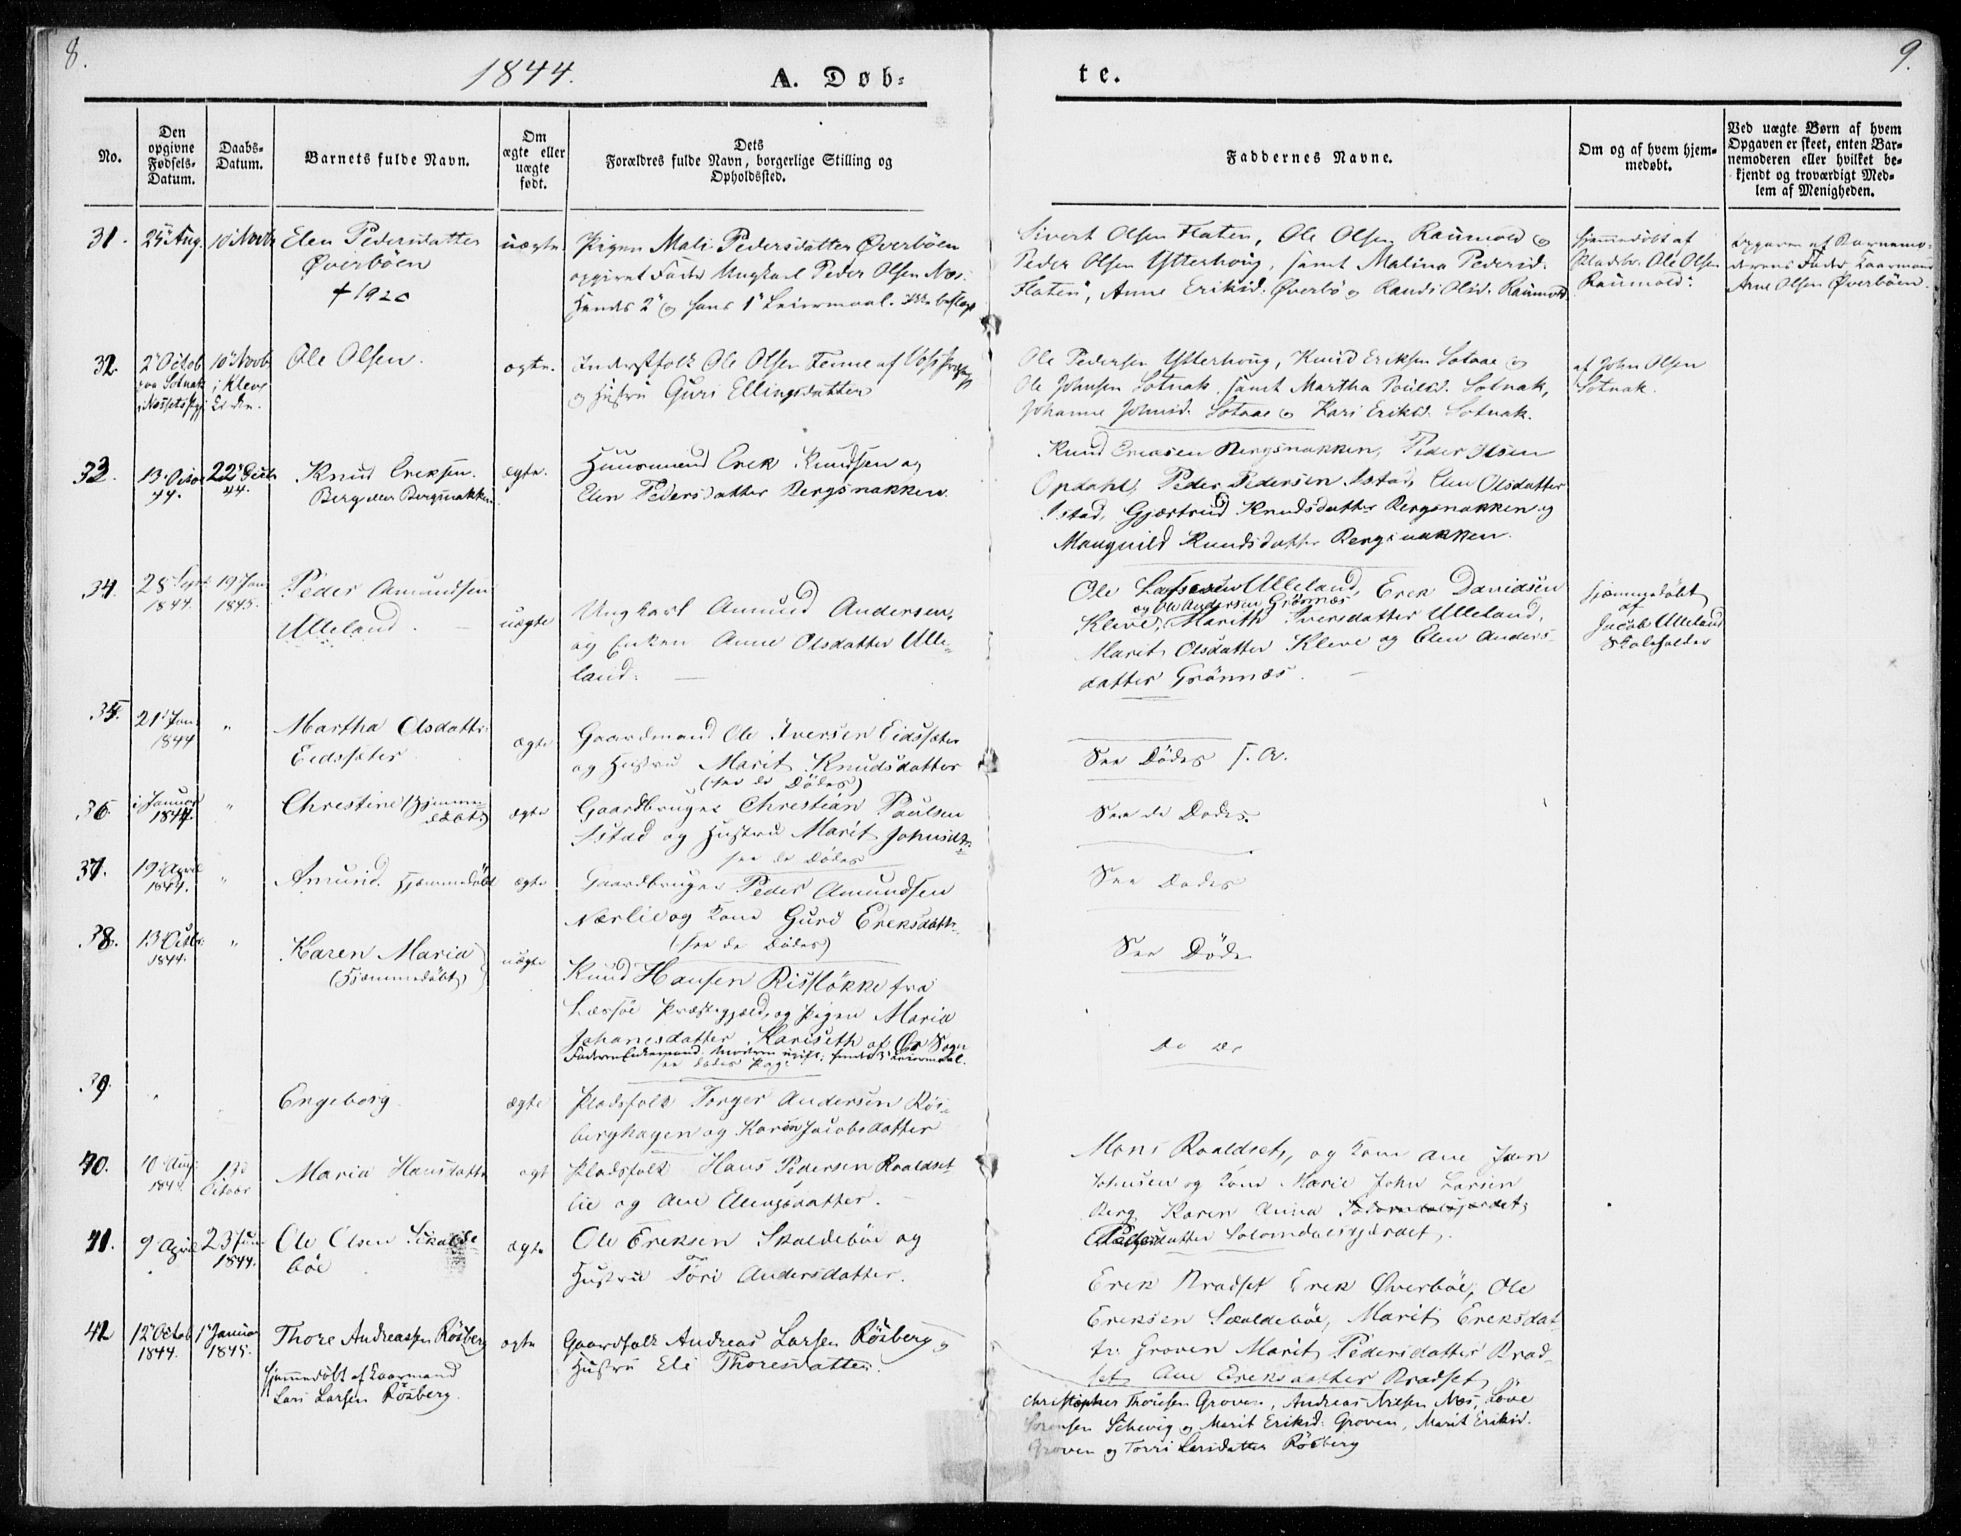 8.
1844.
A. Døb-
te.
9.
No.
Den opgivne Fødsels-Datum.
Daabs-Datum.
Barnets fulde Navn.
Om ægte eller uægte født.
Dets Forældres fulde Navn, borgerlige Stilling og Opholdssted.
Faddernes Navne.
Om og af hvem hjemmedøbt.
Ved uægte Børn af hvem Opgaven er skeet, enten Barnemoderen eller hvilket bekjendt og troværdigt Medlem af Menigheden.
31.
25 Aug.
10 Novb
Elen Pedersdatter
Øverböen
† 1920
uægte
Pigen Mali Pedersdatter Øverböen
opgivet Fader Ungkarl Peder Olsen Næs.
Hendes 2' og hans 1' Leiermaal.
Sivert Olsen Flaten, Ole Olsen Raumold og
Peder Olsen Ytterhoug, samt Malina Pedersd.
Flaten, Anne Eriksd. Øverbö og Randi Olsd. Raumold
hjemmedöbt af
Pladsbr. Ole Olsen
Raumold
opgaven af Barnemo-
derens Fader Kaarmand
Arne Olsen Øverböen.
32.
2' Octob
10' Novb
i Kleve
Kirken.
Ole Olsen.
ægte.
Inderstfolk Ole Olsen Tenne af Vos Prstgj
og Hustru Guri Ellingsdatter
Ole Pedersen Ytterhoug, Knud Eriksen Sotaae og
Ole Johnsen Sotnak, samt Martha Poulsd. Sotnak,
Johanne Johnsd. Sotaae og Kari Eriksd. Sotnak.
af John Olsen
Sotnak.
33.
13 Octor
44.
22 Decb
44.
Knud Ereksen.
Berg eller Bergsnakken
ægte.
Huusmand Erek Knudsen og
Elen Pedersdatter Bergsnakken
Knud Ereksen Bergsnakken, Peder Olsen
Opdahl, Peder Pedersen Istad, Elen Olsdatter
Istad, Gjærtrud Knudsdatter Bergsnakken og
Mangnild Knudsdatter Bergsnakken.
34.
28 Sept
1844.
19 Jan
1845.
Peder Amundsen
Ulleland.
uægte
Ungkarl Amund Andersen,
og Enken Anne Olsdatter Ulle-
land.
Ole Larsen Ulleland, Erek Davidsen
og Ole Andersen Grönnæs
Kleve, Marith Iversdatter Ulleland,
Marit Olsdatter Kleve og Elen Anders-
datter Grönnæs.
hjemmedöbt
af
Jacob Ulleland
Skoleholder
35.
21 Jan
1844
"
Martha Olsdatter
Eidssæter
ægte
Gaardmand Ole Iversen Eidssæter
og Hustru Marit Knudsdatter
(see de Dödes)
See Dödes f. A.
36.
i Januar
1844.
"
Chrestine (hjemme-
döbt)
ægte
Gaardbruger Chrestian Paulsen
Istad og Hustru Marit Johnsdtr
see de Dödes
See de Dodes.
37.
19 April
1844.
"
Amund. hjemmedöbt
ægte
Gaardbruger Peder Amundsen
Nærlie og Kone Guri Ereksdatr.
(see de Dödes)
See Dodes
38.
13 Octbr
1844.
"
Karen Maria
(hjemmedöbt)
uægte
Knud Hansen Rislökke fra
Læssöe Præstegjeld, og Pigen Maria
Johanesdatter Kariseth af Ør Sogn
See Döde
do do
39.
"
Engeborg
ægte
Pladsfolk Torger Andersen Rös-
berghagen og Karen Jacobsdatter
40.
10 Aug
1844
Octobr
Maria Hansdatter
ægt
Pladsfolk Hans Pedersen Raaldset-
lie og Ane Elingsdatter.
Mons Raaldset, og Kone Ane Iven
Johnsen og Kone Marie John Larsen
Berg Karen Anna
Pedersdatter Solemdalsgjærdet.
41.
9 April
23 Juni
1844.
Ole Olsen Skalde
böe
ægte
Ole Ereksen Skaldeböe og
Hustrue Töri Andersdatter.
Erek Bradset Erek Øverböe, Ole
Ereksen Skaldeböe, Marit Ereksdat-
ter Groven Marit Pedersdatter Brad-
set, Ane Ereksdatter Bradset
42
12' Octob
1844.
1' Januar
1845.
Thore Andreassen Rösberg
hjemmedöbt af Kaarmand
Lars Larsen Rösberg.
ægte
Gaardfolk Andreas Larsen Rösberg og
Hustru Eli Thoresdatter.
Christopher Thoresen Groven, Andreas Nilsen Næs, Löve
Sörensen Schevig og Marit Eriksd. Groven, Marit Eriksd.
Groven og Torri Larsdatter Rösberg